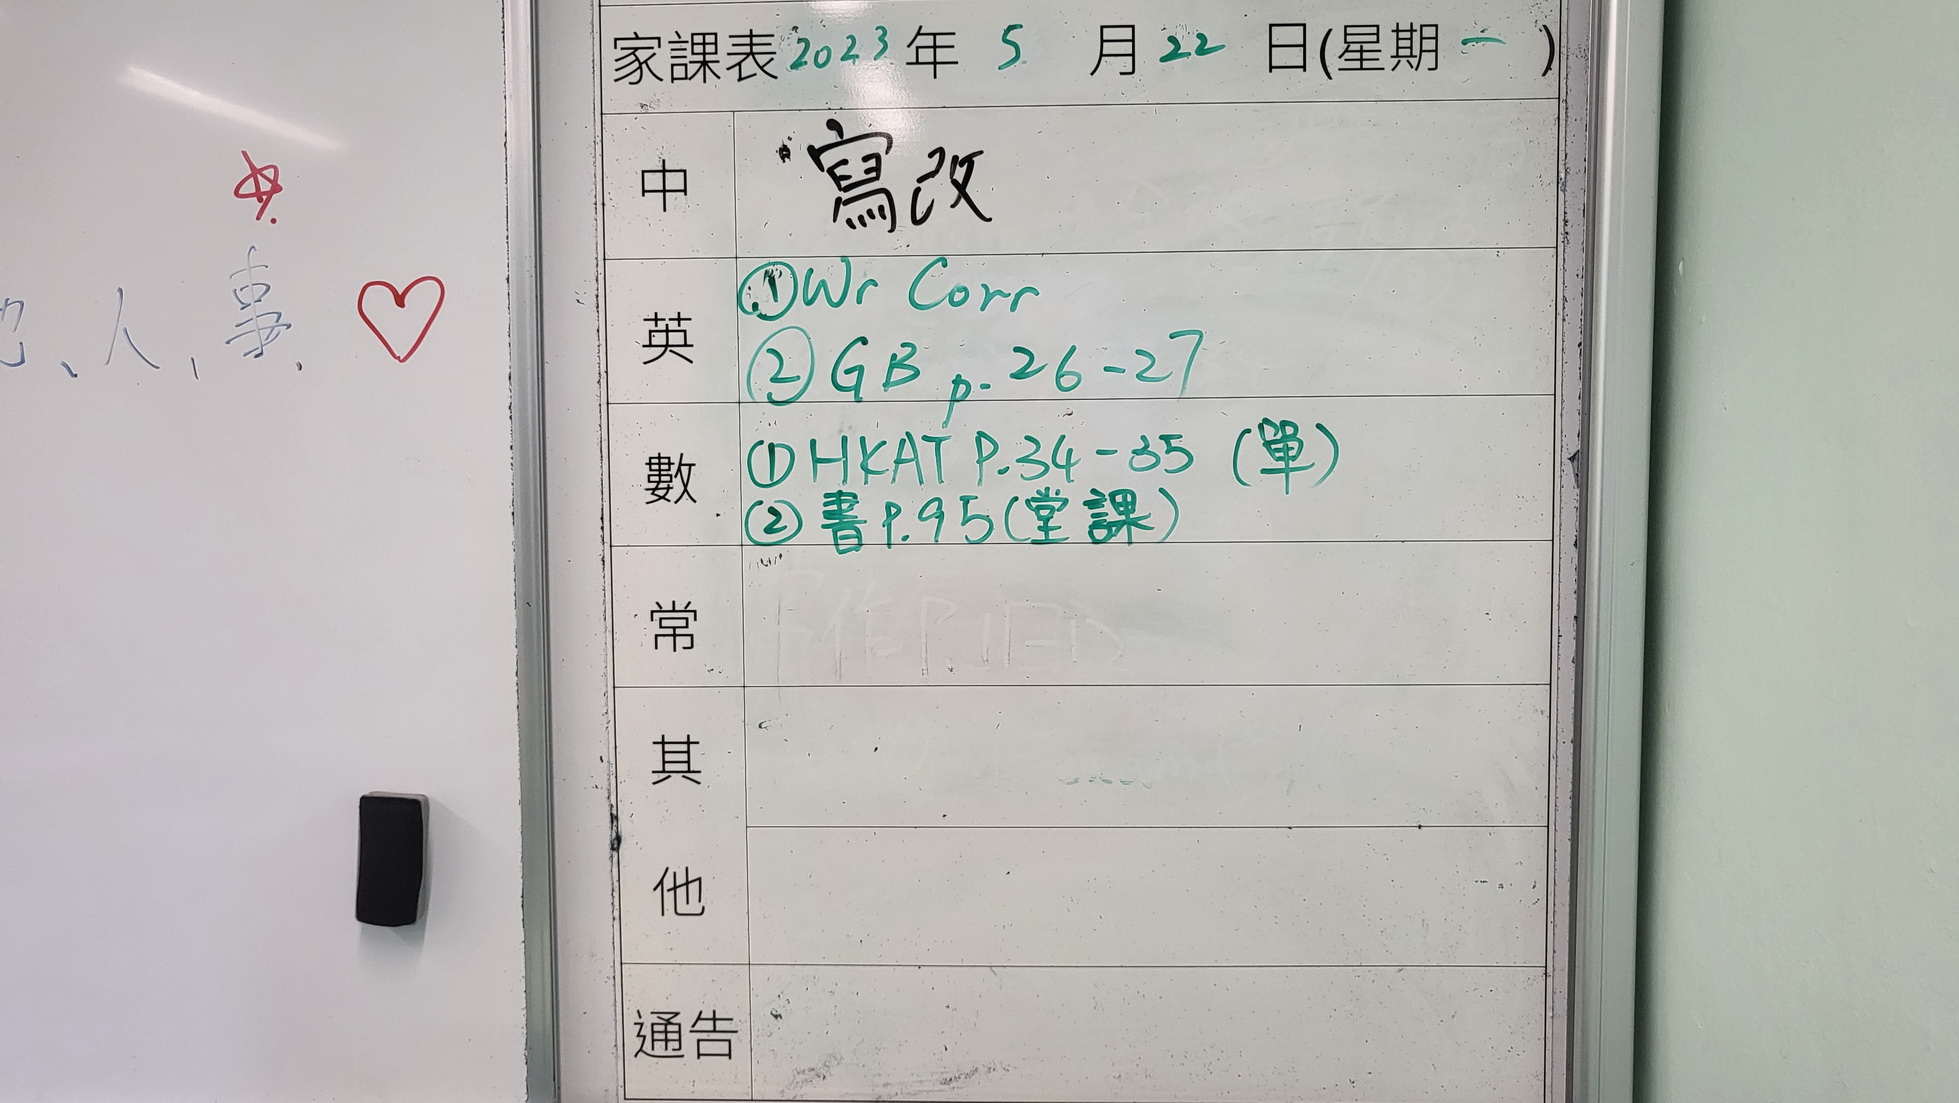 家課表 2023 年 5 月 22 日(星期 一 )
中 寫改
英 ① Wr Corr
② GB p. 26-27
數 ① HKAT P.34-35 (單)
② 書 P.95 (堂課)
常
其
他
通告
、人、事、